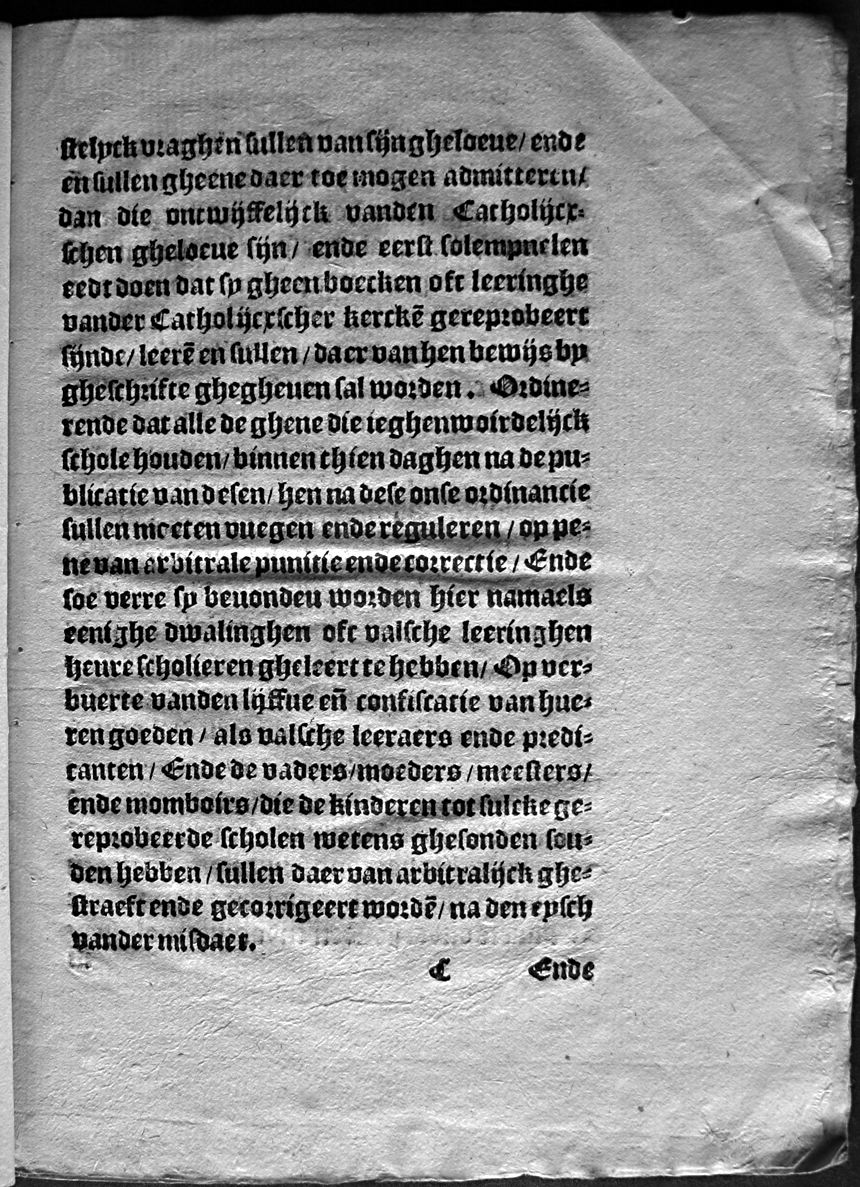 stelyck vraghen sullen van sijn gheloeue/ ende
en sullen gheene daer toe mogen admitteren/
dan die ontwijffelijck vanden Catholijcx⸗
schen gheloeue sijn/ ende eerst solempnelen
eedt doen dat sy gheen boecken oft leeringhe
vander Catholijcxscher kerckē gereprobeert
sijnde/ leerē en sullen/ daer van hen bewijs by
gheschrifte ghegheuen sal worden. Ordine⸗
rende dat alle de ghene die ieghenwoirdelijck
schole houden/ binnen thien daghen na de pu⸗
blicatie van desen/ hen na dese onse ordinancie
sullen moeten vuegen ende reguleren/ op pe⸗
ne van arbitrale punitie ende correctie/ Ende
soe verre sy beuondeu worden hier namaels
eenighe dwalinghen oft valsche leeringhen
heure scholieren gheleert te hebben/ Op ver⸗
buerte vanden lijffue eñ confiscatie van hue⸗
ren goeden/ als valsche leeraers ende predi⸗
canten/ Ende de vaders/ moeders/ meesters/
ende momboirs/ die de kinderen tot sulcke ge⸗
reprobeerde scholen wetens ghesonden sou⸗
den hebben/ sullen daer van arbitralijck ghe⸗
straeft ende gecorrigeert wordē/ na den eysch
vander misdaet.
C Ende